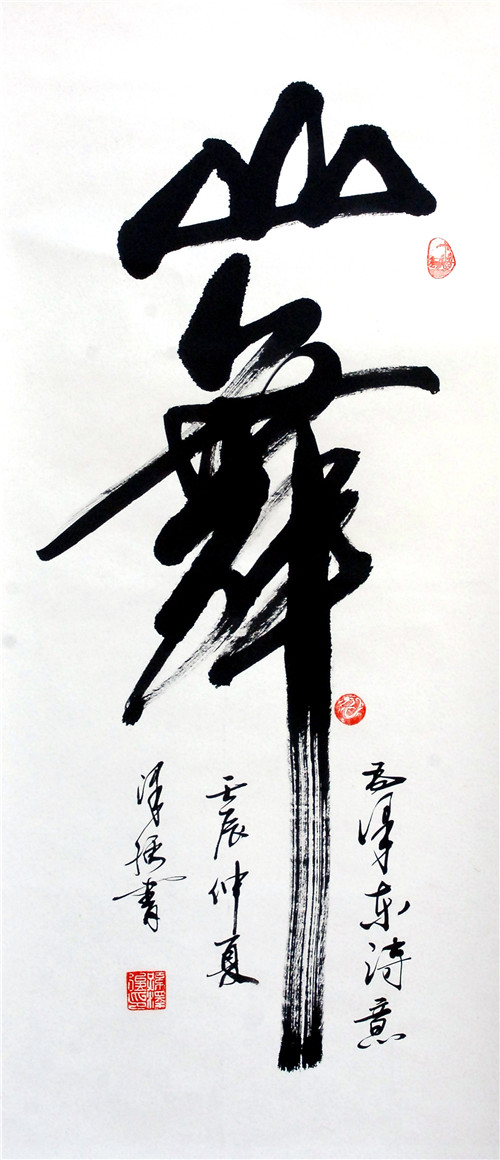 山舞
毛泽东诗意
壬辰仲夏
泽强书